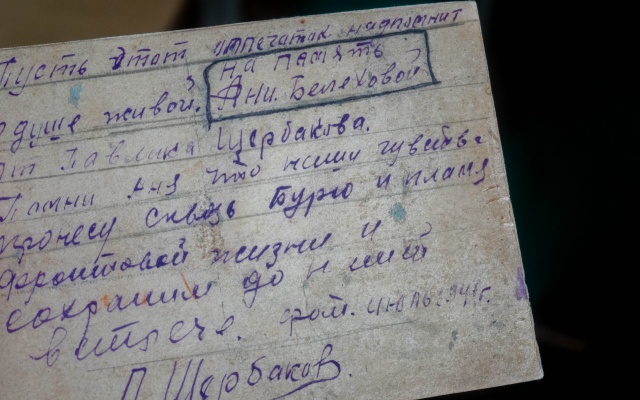 Пусть этот отпечаток напомнит
на память
Ани. Белеховой
о душе живой.
от Павлика Щербакова.
Помни Аня что наши чувства
пронесу сквозь бурю и пламя
фронтовой жизни и
сохраним до н
встрече. фот. июль 1941г.
П. Щербаков.